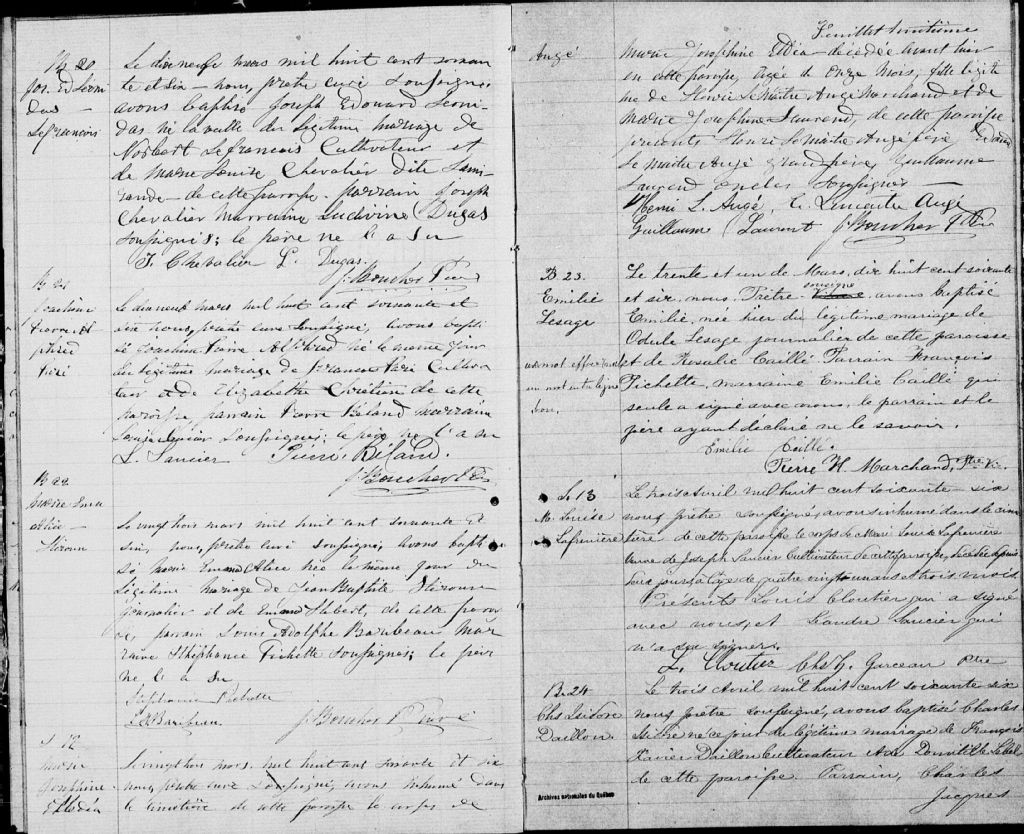 B 20
Jos. Ed Leoni
das
Lefrançois
Le dix neuf mars mil huit cent soixan
te et six nous, prêtre curé soussigné,
avons baptisé Joseph Edouard Leoni-
das né la veille du légitime mariage de
Norbert Lefrancois Cultivateur et
de Marie Louise Chevalier dite Lami-
rande de cette paroisse. parrain Joseph
Chevalier Marraine Ludivine Dugas
soussignés; le père ne l a su
J. Chevalier L. Dugas
J. Boucher Ptre
B 21
Joachim
Pierre Al
phred
mil huit cent soixante et
six nous, prêtre curé soussigné, avons bapti
sé Joachim Pierre Alphred né le même jour
du légitime mariage de Cultiva
teur et de Elizabethe Chrétien de cette
paroisse parrain Pierre Beland marraine
Saucier soussignés; le père ne l'a su
L. Saucier Pierre Beland.
J. Boucher Ptre
B 22
Marie Ema
Alice
Le vingt trois mars mil huit cent soixante et
six, nous, prêtre curé soussigné, avons bapti
sé Marie Emma Alice née le même jour du
légitime mariage de Jean Baptiste
journalier et de Hebert, de cette parois
se, parrain Louis Adolphe Baribeau Mar
raine Stéphanie Pichette soussignés; le père
ne l a su
Stéphanie Pichette
L A Baribeau J. Boucher Ptre Curé
S 12
Marie
Josephine
Eldéa
Le vingt trois mars, mil huit cent soixante et six
nous, prêtre curé soussigné, avons inhumé dans
le cimetière de cette paroisse le corps de
Feuillet huitième
Augé
Marie Josephine Eldéa décédée avant hier
en cette paroisse, agée de onze mois, fille légiti
me de Henri Lemaitre Augé Marchand et de
Marie Josephine Laurend, de cette paroisse
présents Henri Lemaitre Augé père,
Le maitre Augé grand père, Guillaume
Laurend oncles soussignés
Henri L. Augé, L. Lemaitre Augé
Guillaume Laurent J. Boucher Ptre
B 23.
Emilie
Lesage
Le trente et un de Mars, dix huit cent soixante
soussigné
et six, nous, Prêtre avons baptisé
Emilie, née hier du légitime mariage de
Odule Lesage journalier de cette paroisse
et de Rosalie Caillé. Parrain François
Pichette, marraine Emilie Caillé qui
seule a signé avec nous, le parrain et le
père ayant déclaré ne le savoir.
un mot
bon,
Emilie Caille
Pierre H. Marchand, Ptre Vic
S. 13
M. Louise
Lafrenière
Le trois avril mil huit cent soixante six
nous prêtre soussigné, avons inhumé dans le cime
tière de cette paroisse le corps de Marie Louise Lafrenière
Veuve de Joseph Saucier Cultivateur de cette paroisse, décédée depuis
deux jours, agée de quatre vingt un ans et trois mois
Présents Louis Cloutier qui a signé
avec nous, et Leandre Saucier qui
n'a su signer.
L. Cloutier Chs Z. Garceau Ptre
B. 24
Chs Isidore
Daillon
Le trois Avril mil huit cent soixante six
nous prêtre soussigné, avons baptisé Charles
Isidore né ce jour du légitime mariage de François
Xavier Daillon Cultivateur et de Domitille Lebel
de cette paroisse. Parrain, Charles
Jacques
Archives nationales du Québec